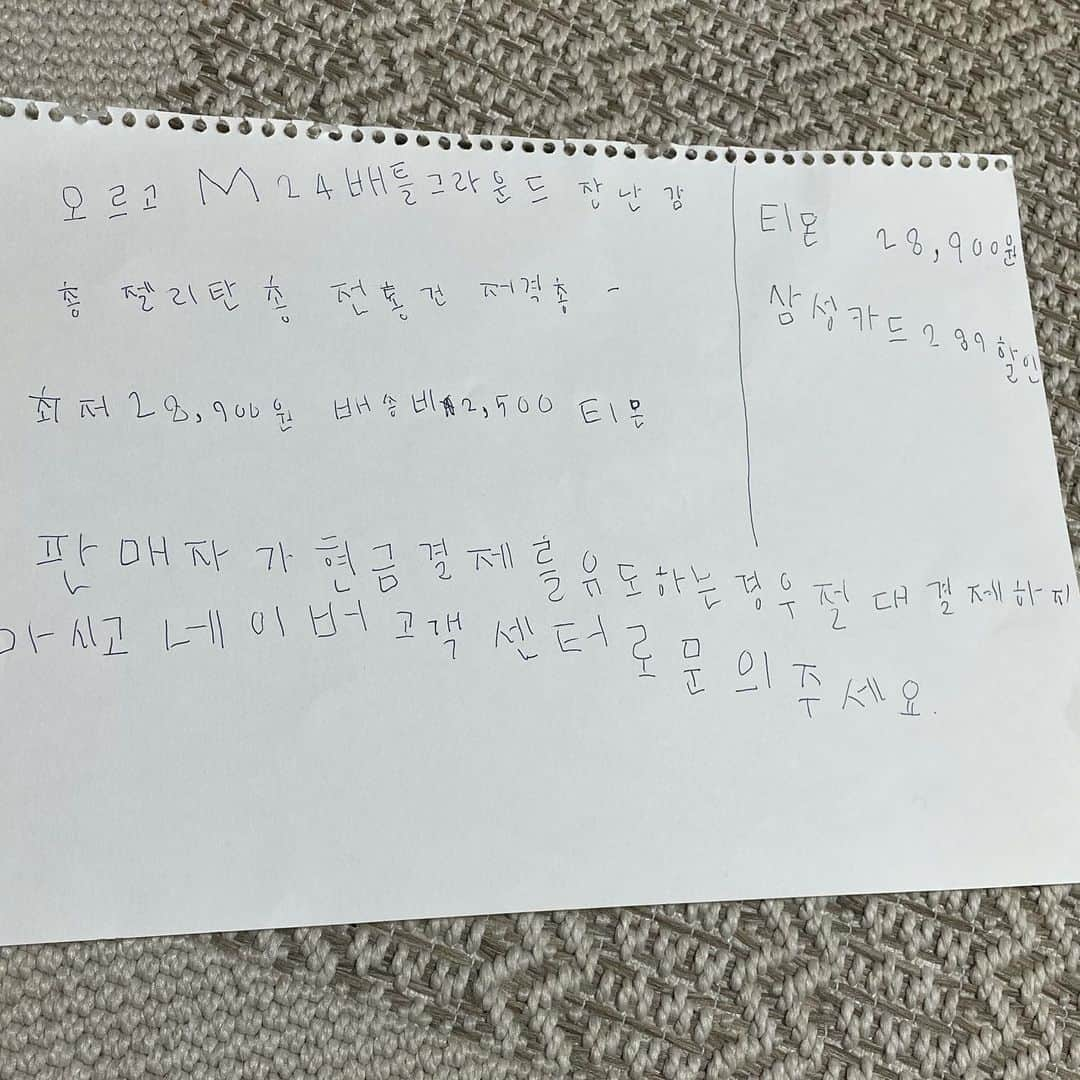 오르고 M24배틀그라운드 장난감
총 젤리탄총 전동건 저격총 -
최저 28,900원 배송비 2,500 티몬
티몬 28,900원
삼성카드 289 할인
판매자가 현금결제를 유도하는 경우 절대 결제하지
마시고 네이버 고객센터로 문의주세요.